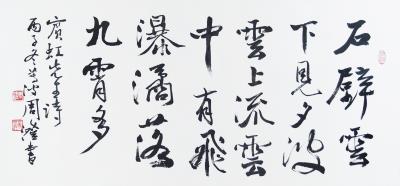 石壁雲
下見夕波
雲上流雲
中有飛
瀑满落
九霄多
賓虹先生詩
丙子冬芝深周澄書